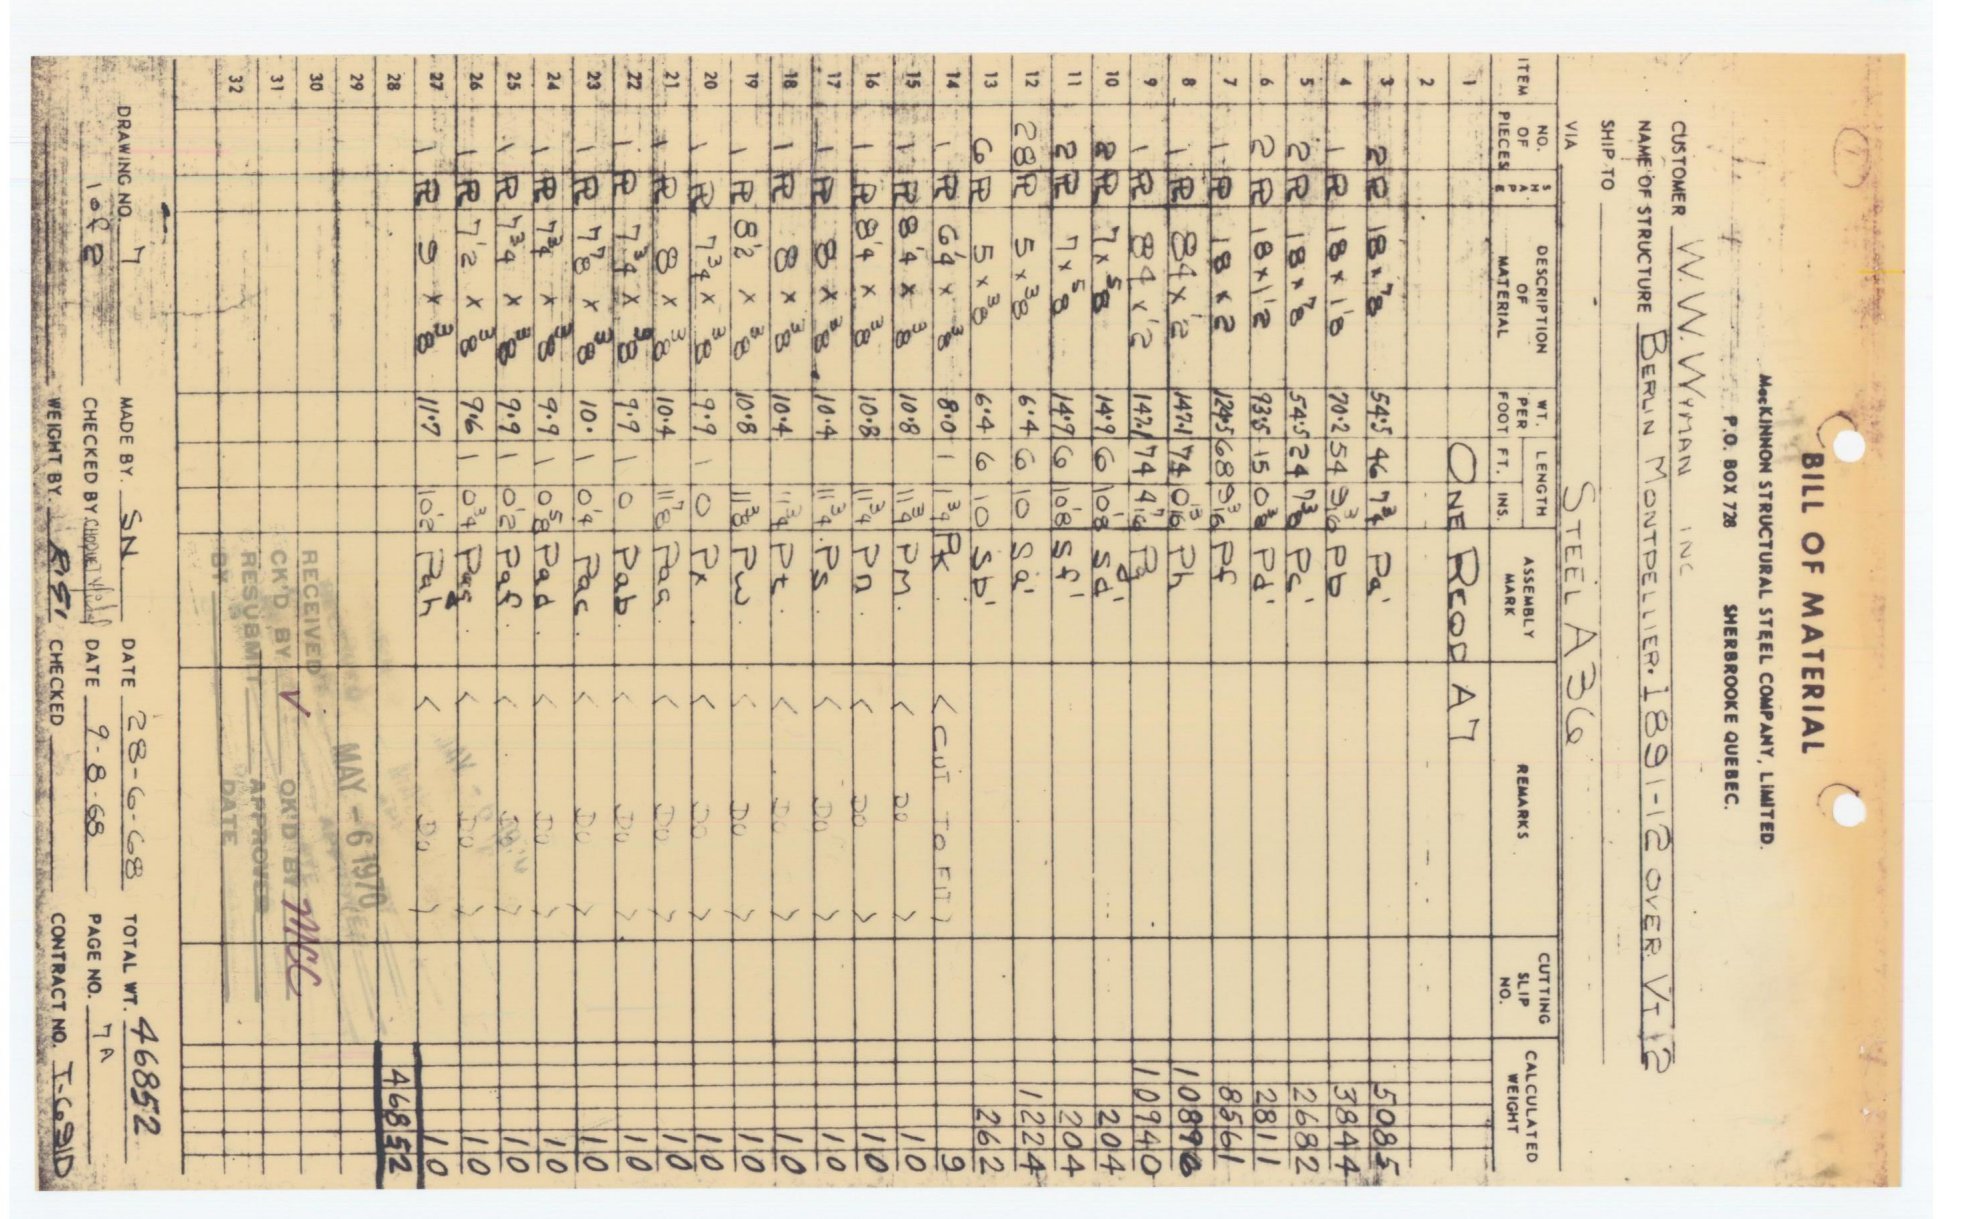 BILL OF MATERIAL
MacKINNON STRUCTURAL STEEL COMPANY, LIMITED.
P.O. BOX 728 SHERBROOKE QUEBEC.
CUSTOMER W.W. WYMAN INC
NAME OF STRUCTURE BERLIN MONTPELLIER. 1891-12 OVER VT 12
SHIP TO
VIA STEEL A36
ITEM NO. OF PIECES SHAPE DESCRIPTION OF MATERIAL WT. PER FOOT LENGTH FT. INS. ASSEMBLY MARK REMARKS CUTTING SLIP NO. CALCULATED WEIGHT
1 ONE REQD A7
2
3 2 PL 18 x 7/8 54.5 46 7 3/4 Pa' 5085
4 1 PL 18 x 1 1/8 70.2 54 9 3/16 Pb 3844
5 2 PL 18 x 7/8 54.5 24 7 3/8 Pc' 2682
6 2 PL 18 x 1 1/2 93.5 15 0 3/8 Pd' 2811
7 1 PL 18 x 2 124.5 68 9 3/16 Pf 8561
8 1 PL 84 x 1/2 147.1 74 0 13/16 Ph 10890
9 1 PL 84 x 1/2 147.1 74 4 7/16 Pg 10940
10 2 PL 7 x 5/8 14.9 6 10 1/8 Sd' 204
11 2 PL 7 x 5/8 14.9 6 10 1/8 Sf' 204
12 28 PL 5 x 3/8 6.4 6 10 Sa' 1224
13 6 PL 5 x 3/8 6.4 6 10 Sb' 262
14 1 PL 6 1/4 x 3/8 8.0 1 1 3/4 Pk. < CUT TO FIT > 9
15 1 PL 8 1/4 x 3/8 10.8 11 3/4 PM. < DO > 10
16 1 PL 8 1/4 x 3/8 10.8 11 3/4 Pn < DO > 10
17 1 PL 8 x 3/8 10.4 11 3/4 Ps < DO > 10
18 1 PL 8 x 3/8 10.4 11 3/4 Pt. < DO > 10
19 1 PL 8 1/2 x 3/8 10.8 11 3/8 Pw < DO > 10
20 1 PL 7 3/4 x 3/8 9.9 1 0 Px < DO > 10
21 1 PL 8 x 3/8 10.4 11 7/8 Paa < DO > 10
22 1 PL 7 3/4 x 3/8 9.9 1 0 Pab. < DO > 10
23 1 PL 7 7/8 x 3/8 10. 1 0 1/4 Pac. < DO > 10
24 1 PL 7 3/4 x 3/8 9.9 1 0 5/8 Pad < DO > 10
25 1 PL 7 3/4 x 3/8 9.9 1 0 1/2 Paf. < DO > 10
26 1 PL 7 1/2 x 3/8 9.6 1 0 3/4 Pag < DO > 10
27 1 PL 9 x 3/8 11.7 10 1/2 Pah < DO > 10
28 46852
29
30
31
32
RECEIVED MAY - 6 1970
CK'D BY OK'D BY MCC
RESUBMIT APPROVED
BY DATE
DRAWING NO. 7 MADE BY. SN DATE 28-6-68 TOTAL WT. 46852
1 of 2 CHECKED BY DATE 9-8-68 PAGE NO. 7A
WEIGHT BY. CHECKED CONTRACT NO. T-691D